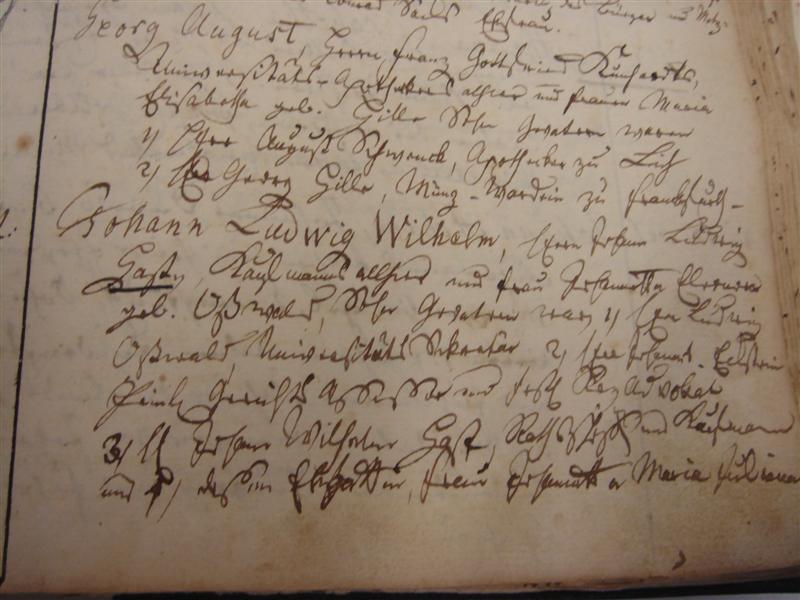 des Bürger und Metz-
Conrad Ehefrau.
Georg August, Herrn Franz Gottfried Kunhardts,
Universitäts-Apothekers allhier und Frauen Maria
Elisabetha geb. Hille Sohn Gevattern waren
1) Herr August Schwenck, Apothecker zu Lich
2) Herr Georg Hille, Münz-Wardein zu Frankfurth-
Johann Ludwig Wilhelm, Herrn Johann Ludwig
Gasts, Kaufmanns allhier und Frau Johannetta Eleonora
geb. Oßwald, Sohn Gevattern waren 1) Herr Ludwig
Oßwald, Universitäts Sekretär 2) Herr Johannes Eckstein
Peinl. Gerichts Assessor und Advokat
3) H. Johann Wilhelm Gast, Raths und Kaufmann
und 4) dessen Ehegattin, Frau Johannetta Maria Juliana